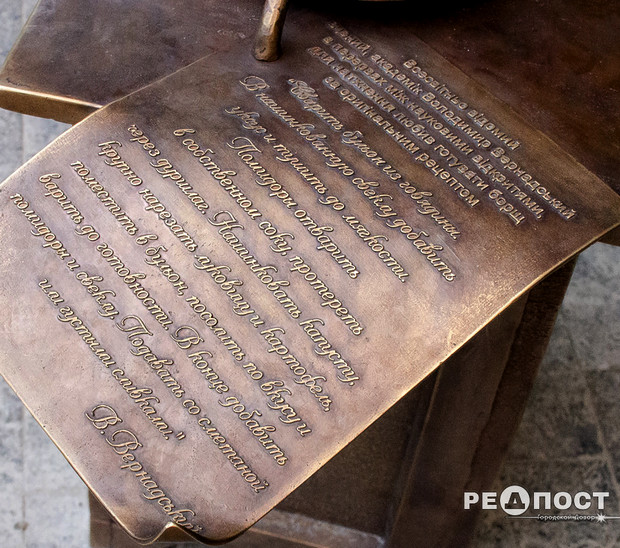 Всесвітньо відомий
академік Володимир Вернадський
в перервах між науковими відкриттями,
для натхнення любив готувати борщ
за оригінальним рецептом
"Сварить бульон из говядины.
В нашинкованную свеклу добавить
уксус и тушить до мягкости.
Помидоры отварить
в собственном соку, протереть
через дуршлаг. Нашинковать капусту,
крупно нарезать луковицу и картофель,
поместить в бульон, посолить по вкусу и
варить до готовности. В конце добавить
помидоры и свеклу. Подавать со сметаной,
или густыми сливками."
В. Вернадський
РЕДПОСТ
Городской Дозор